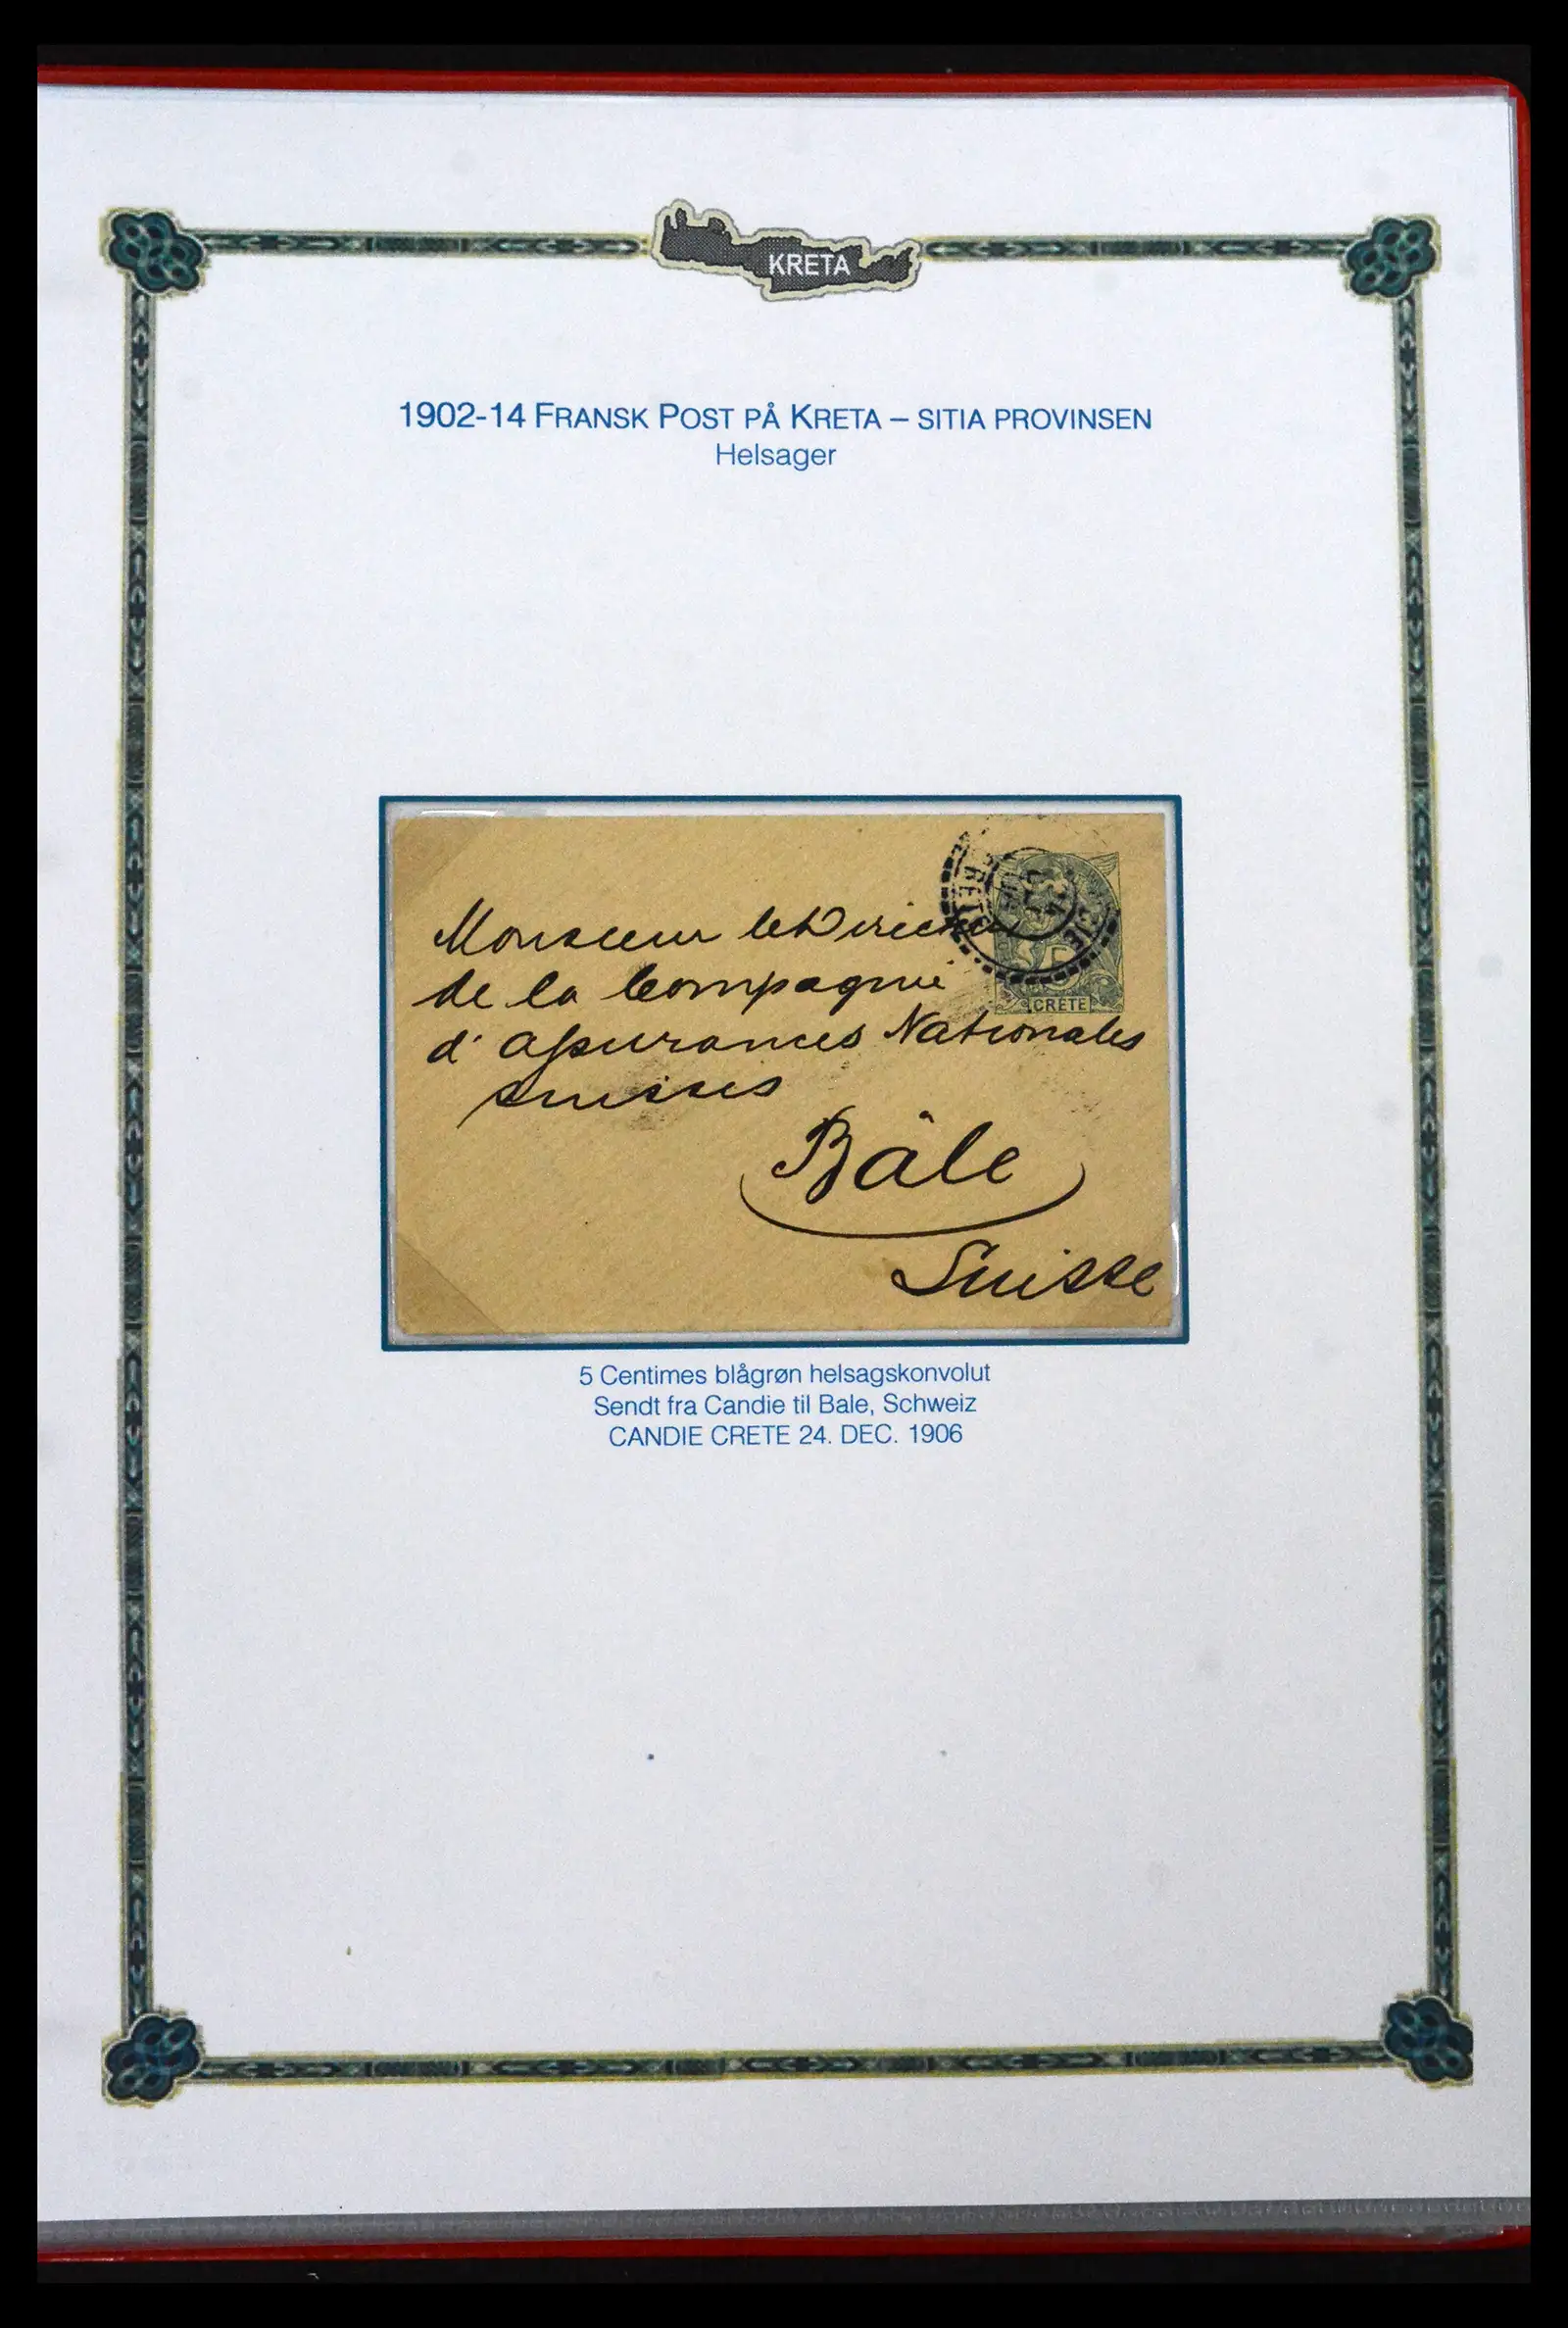 KRETA
1902-14 FRANSK POST PÅ KRETA – SITIA PROVINSEN
Helsager
Monsieur le Direct
de la Compagnie
d'Assurances Nationales
Suisses
Bâle
Suisse
CRETE
5
CRETE
5 Centimes blågrøn helsagskonvolut
Sendt fra Candie til Bale, Schweiz
CANDIE CRETE 24. DEC. 1906